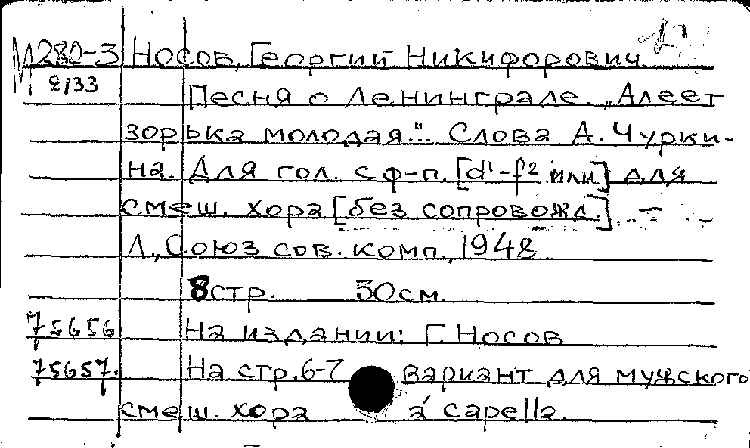 М280-3 Носов, Георгий Никифорович
2/33 Песня о Ленинграде. „Алеет
зорька молодая." Слова А. Чурки-
на. Для гол. с ф-п. [d¹-f² или] для
смеш. хора [без сопровожд.]. –
Л., Союз сов. комп., 1948
8 стр. 30 см.
75656 На издании: Г. Носов
75657. На стр. 6-7 вариант для мужского
смеш. хора a' capella.